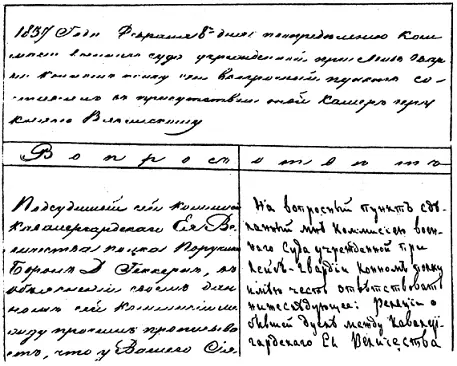 1837 Года Февраля 8 дня по определению Ком-
миссии военнаго суда учрежденной при Лейб Гвар-
дии Конном полку сей вопросный пункт со-
ставлен в присутствии оной Камер юнкеру
Вопрос
ответъ
Подсудимый сей коммисии
Кавалергардскаго Ея Ве-
личества полка Порутчик
Барон Д Геккерен, в
объяснении своем дан-
ном сей Коммисии меж-
ду прочим прописыва-
ет, что у Вашего Сия-
На вопросный пунктъ сдѣ-
ланный мнѣ Коммисіею воен-
наго Суда учрежденной при
Лейбъ-Гвардіи Конномъ полку
имѣю честь отвѣтствовать
нижеслѣдующее: Реляціи о
бывшей дуэли между Кавалер-
гардскаго Ея Величества